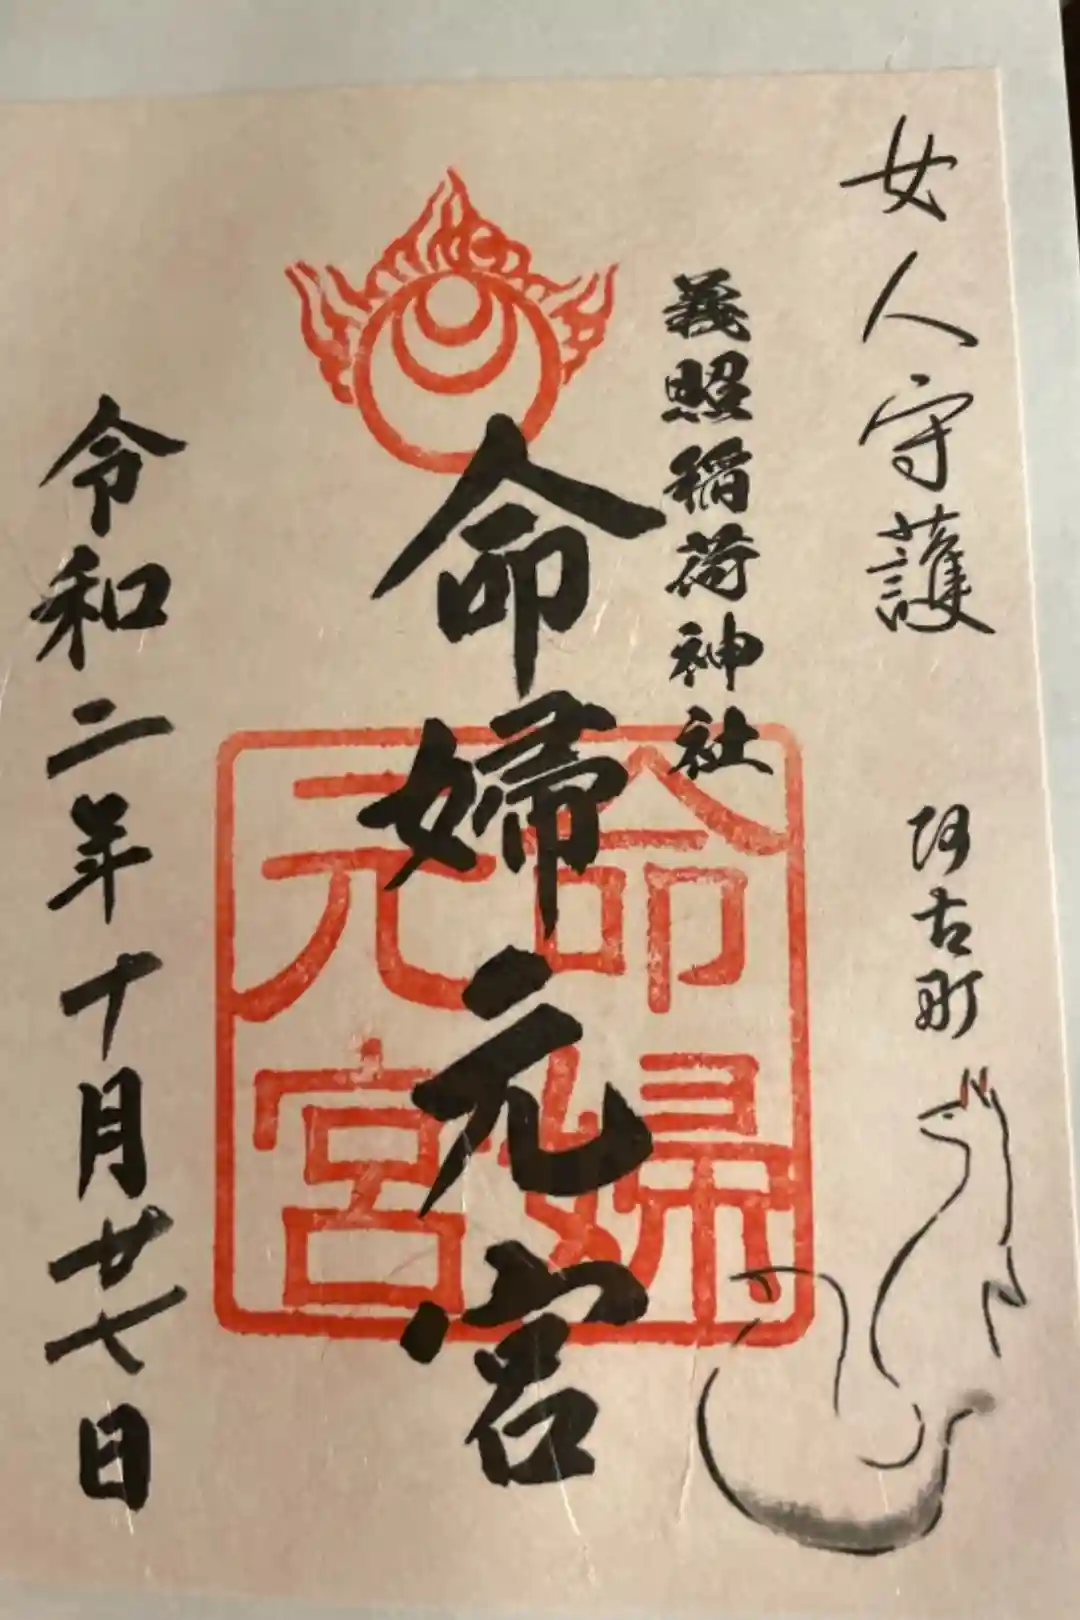 女人守護
阿古町
義照稲荷神社
命婦元宮
命婦
元宮
令和二年十月廿七日